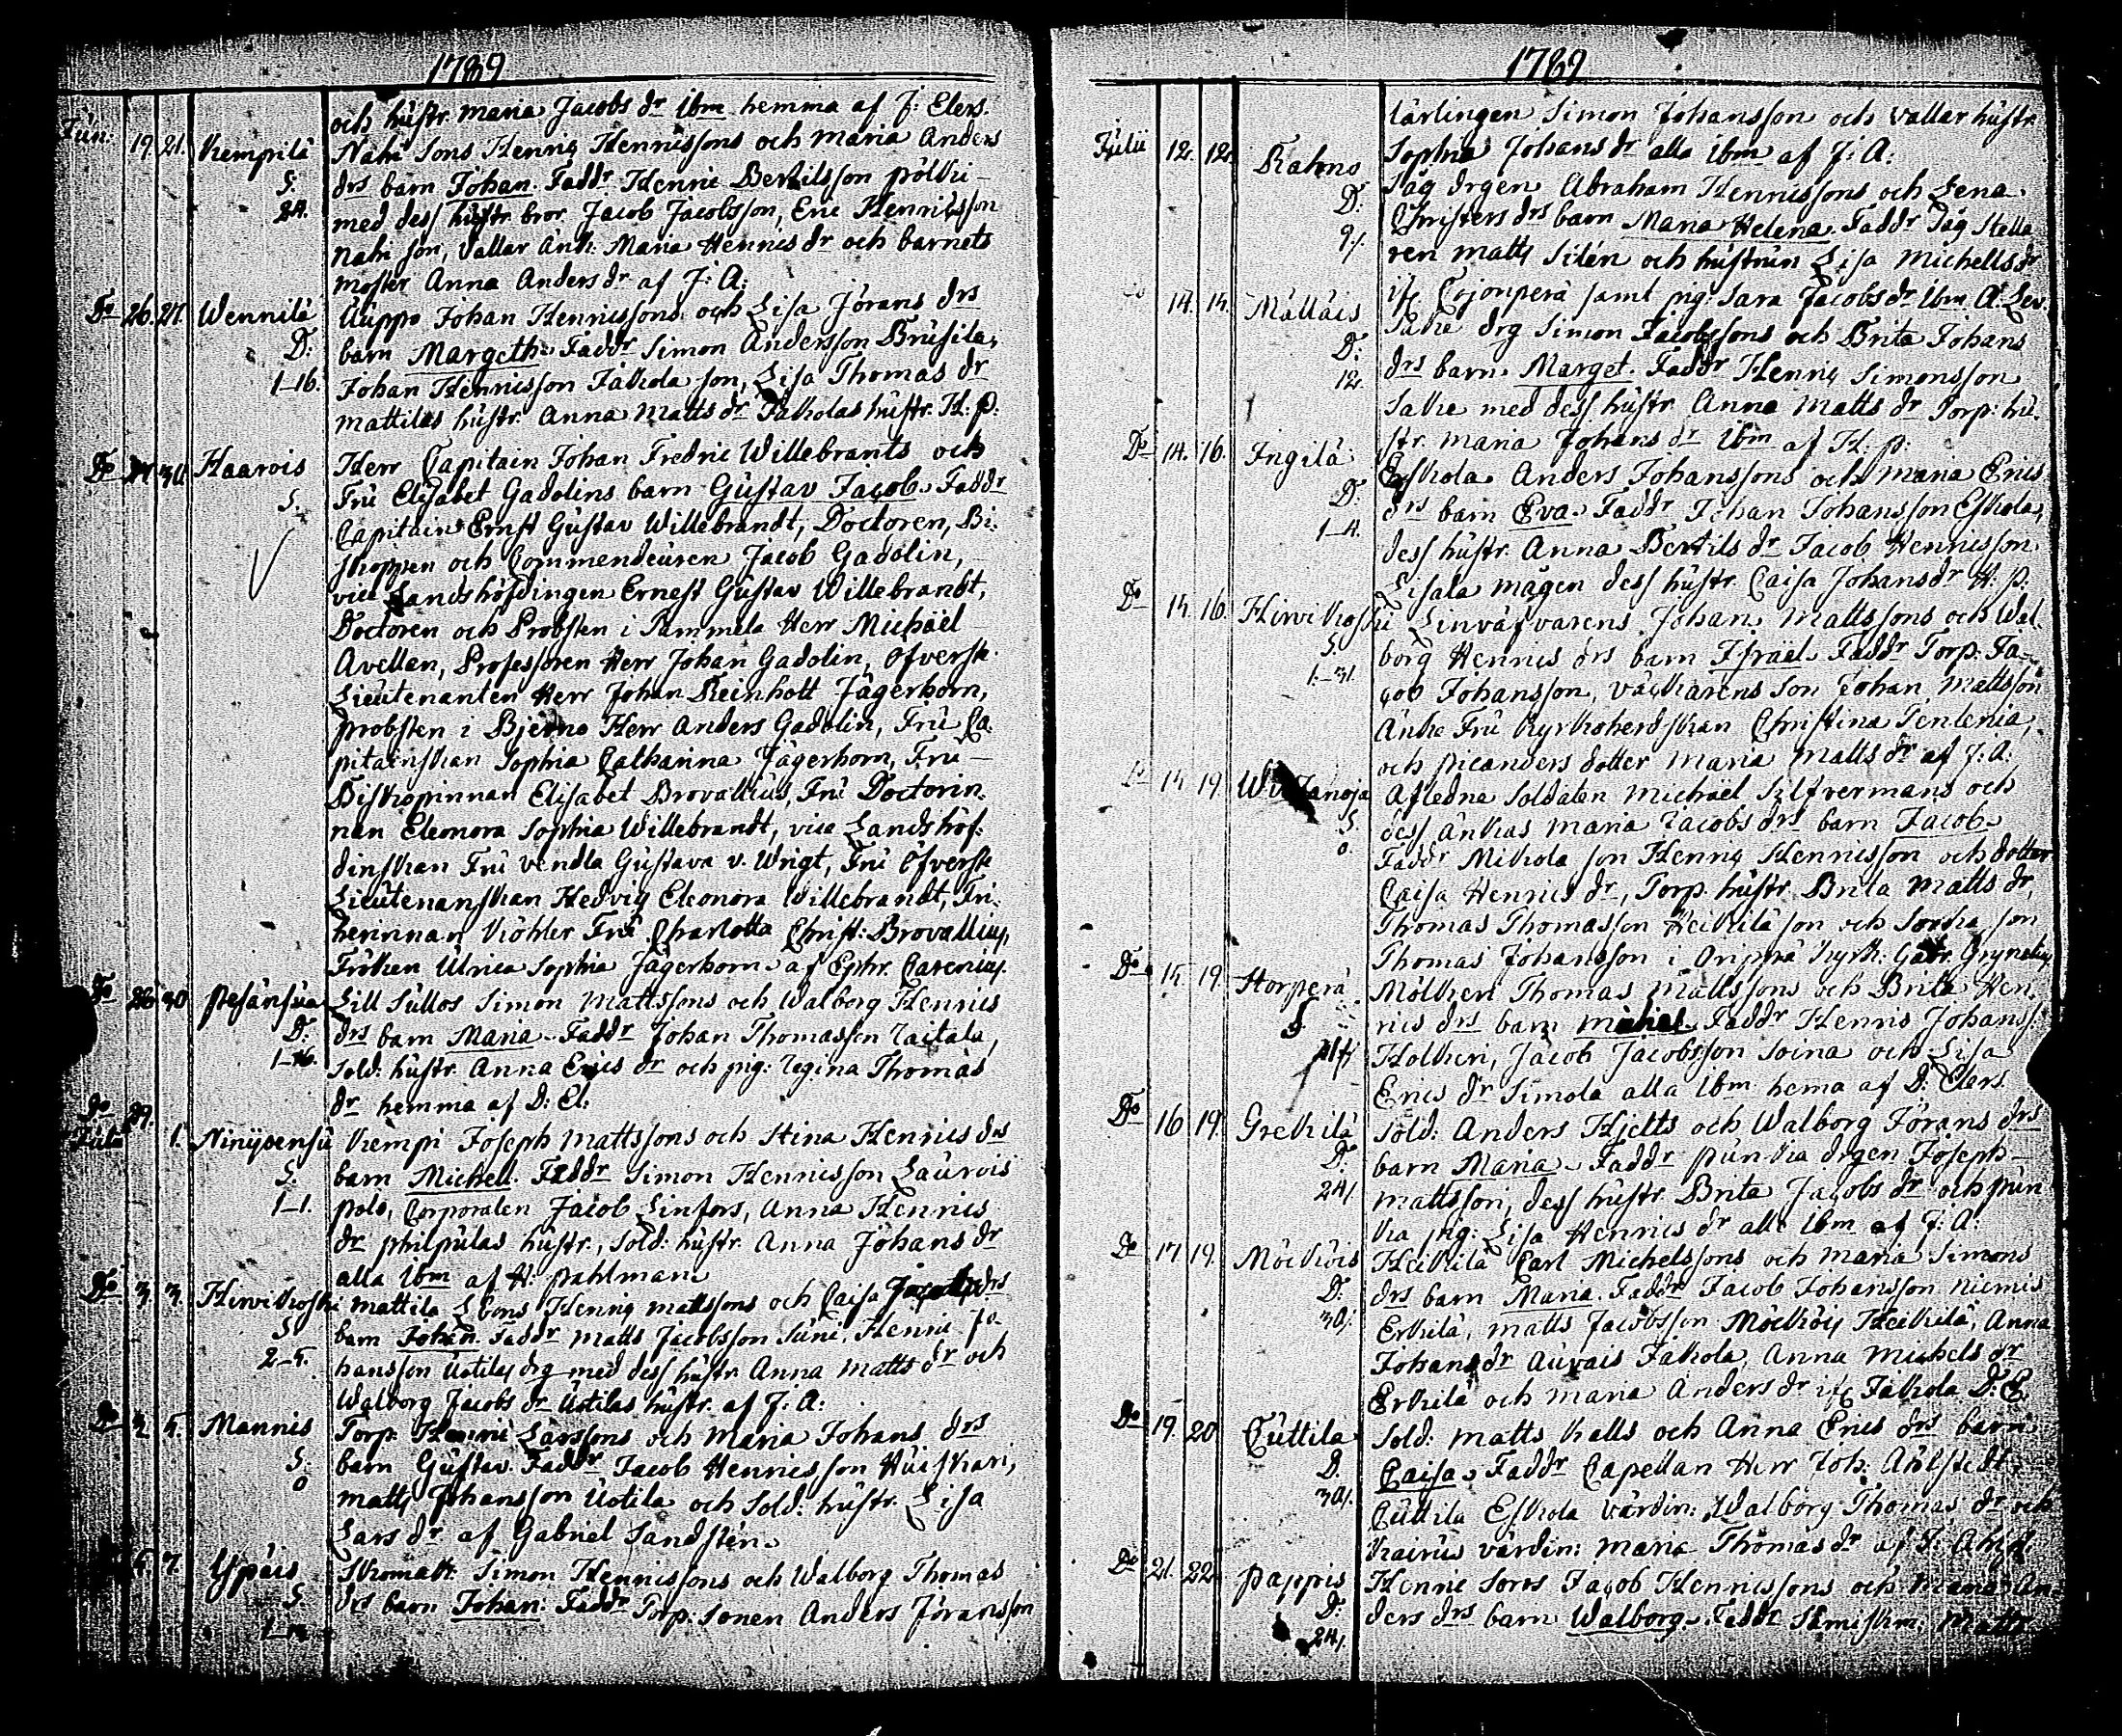 1789
och hustr. Maria Jacobs dr ibm hemma af J: Elers.
Jun: 19. 21. Kempilä Nahi Sons Henriq Henricssons och Maria Anders
S. drs barn Johan. Faddr Henric Bertilsson pölkki
24. med dess hustr. bror Jacob Jacobsson, Eric Henricsson
Nahi son, Vallar änk. Maria Henrics dr och barnets
moster Anna Anders dr af J: A:
Do 26. 27. Wennilä Uuppo Johan Henricssons och Lisa Jörans drs
D: barn Margeth. Faddr Simon Andersson Brusila,
1-16. Johan Henricsson Jakola son, Lisa Thomas dr
Mattilas hustr. Anna Matts dr Jakolas hustr. H: p:
Do 30. Haarois Herr Capitain Johan Fredric Willebrants och
S. Fru Elisabet Gadolins barn Gustav Jacob. Faddr
Capitain Ernst Gustav Willebrandt, Doctoren, Bi-
skoppen och Commendeuren Jacob Gadolin,
vice Landshöfdingen Ernest Gustav Willebrandt,
Doctoren och Probsten i Tammela Herr Michäel
Avellan, Professoren Herr Johan Gadolin, Öfverste
Lieutenanten Herr Johan Reinholt Jägerhorn,
probsten i Bjerno Herr Anders Gadolin, Fru Ca-
pitainskan Sophia Catharina Jägerhorn, Fru
Biskopinnan Elisabet Brovallius, Fru Doctorin-
nan Eleonora Sophia Willebrandt, vice Landshöf-
dinskan Fru Vendla Gustava v. Wrigt, Fru Öfverste
Lieutenanskan Hedvig Eleonora Willebrandt, Fri-
herinnan Köhler Fru Charlotta Christ: Brovallius,
Fröken Ulrica Sophia Jägerhorn af Ephr. Carenius.
Do 26 30 Pesänsuu Lill Sullos Simon Mattssons och Walborg Henrics
D: drs barn Maria. Faddr Johan Thomasson Taitala,
1-16. Sold: hustr. Anna Erics dr och pig: Regina Thomas
dr hemma af D: El:
Do 29.
Julii 1. Ninijoensu Kempi Joseph Mattssons och Stina Henrics drs
S. barn Michell. Faddr Simon Henricsson Laurois
1-1. polo, Corporalen Jacob Linfors, Anna Henrics
dr Philpulas hustr., Sold: hustr. Anna Johans dr
alla ibm af H: Pahlman.
Do 3. 3. Hirvikoski Mattila Sons Henriq Mattssons och Caisa Jacobs drs
S. barn Johan. Faddr Matts Jacobsson Suni, Henric Jo-
2-5. hansson Uotilas drg med dess hustr. Anna Matts dr och
Walborg Jacobs dr Uotilas hustr. af J: A:
Do 2 5. Mannis Torp. Henric Larssons och Maria Johans drs
S. barn Gustav. Faddr Jacob Henricsson Huiskari,
0 Matts Johansson Uotila och Sold: hustr. Lisa
Lars dr af Gabriel Sandsten.
5. 7. Ypäis Skomak. Simon Henricssons och Walborg Thomas
S drs barn Johan. Faddr Torp: Sonen Anders Jöransson
1789
lärlingen Simon Johansson och Vallar hustr.
Sophia Johans dr alla ibm af J: A:
Julii 12. 12. Rahno Tåg drgen Abraham Henricssons och Lena
D: Christers drs barn Maria Helena. Faddr Tåg Stella
9/. ren Matts Silén och hustrun Lisa Michells dr
samt pig: Sara Jacobs dr ibm A: Lev.
14. 14. Mälläis Sakie drg Simon Jacobssons och Brita Johans
D: drs barn Marget. Faddr Henriq Simonsson
12. Sakie med dess hustr. Anna Matts dr Torp: hu-
str. Maria Johans dr ibm af H: p:
Do 14. 16. Ingilä Eskola Anders Johanssons och Maria Erics
D: drs barn Eva. Faddr Johan Johansson Eskola,
1-4. dess hustr. Anna Bertils dr Jacob Henricsson
Lisala mågen dess hustr. Caisa Johans dr H: p:
Do 14. 16. Hirvikoski Linväfvarens Johan Mattssons och Wal-
S. borg Henrics drs barn Israël. Faddr Torp. Ja-
1-31. cob Johansson, Väfkarens Son Johan Mattsson
Änke Fru Kyrkoherdskan Christina Tenlenia,
och Picanders dotter Maria Matts dr af J: A:
14 19 Afledne Soldaten Michäel Silfvermans och
S. dess änkas Maria Jacobs drs barn Jacob.
0. Faddr Mikola son Henriq Henricsson och dotter
Caisa Henrics dr, Torp. hustr. Brita Matts dr,
Thomas Thomasson Heikilä son och Sorka son
Thomas Johansson i Oripää kyrk: Gabr. Grynelius
Do 15. 19. Storperä Mölkkeri Thomas Mattssons och Brita Hen-
S rics drs barn Michel. Faddr Henric Johanss:
Holkeri, Jacob Jacobsson Soina och Lisa
Erics dr Simola alla ibm hema af D: Elers.
Do 16 19. Grekilä Sold: Anders Hjelts och Walborg Jörans drs
D: barn Maria. Faddr Punkia drgen Joseph
24/. Mattsson, dess hustr. Brita Jacobs dr och Pun-
kia pig: Lisa Henrics dr alla ibm af J: A:
Do 17. 19. Mäkiöis Heikilä Carl Michelssons och Maria Simons
D: drs barn Maria. Faddr Jacob Johansson Niemis
30/. Erkilä, Matts Jacobsson Heikilä, Anna
Johans dr Auvais Jakola, Anna Michels dr
Erkilä och Maria Anders dr Jakola D: E
Do 19. 20 Cuttila Sold: Matts Kalls och Anna Erics drs barn
D. Caisa. Faddr Capellan Herr Joh: Ahlstedt,
30/. Cuttila Eskola värdin: Walborg Thomas dr och
Kairus värdin: Maria Thomas dr af J: Ahlst.
Do 21. 22. Pappis Henric Sons Jacob Henricssons och Maria An-
D: ders drs barn Walborg. Faddr Matts
24/.